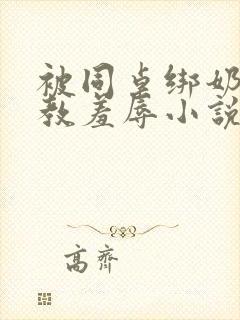 被同桌绑奶
教羞辱小説
高齐